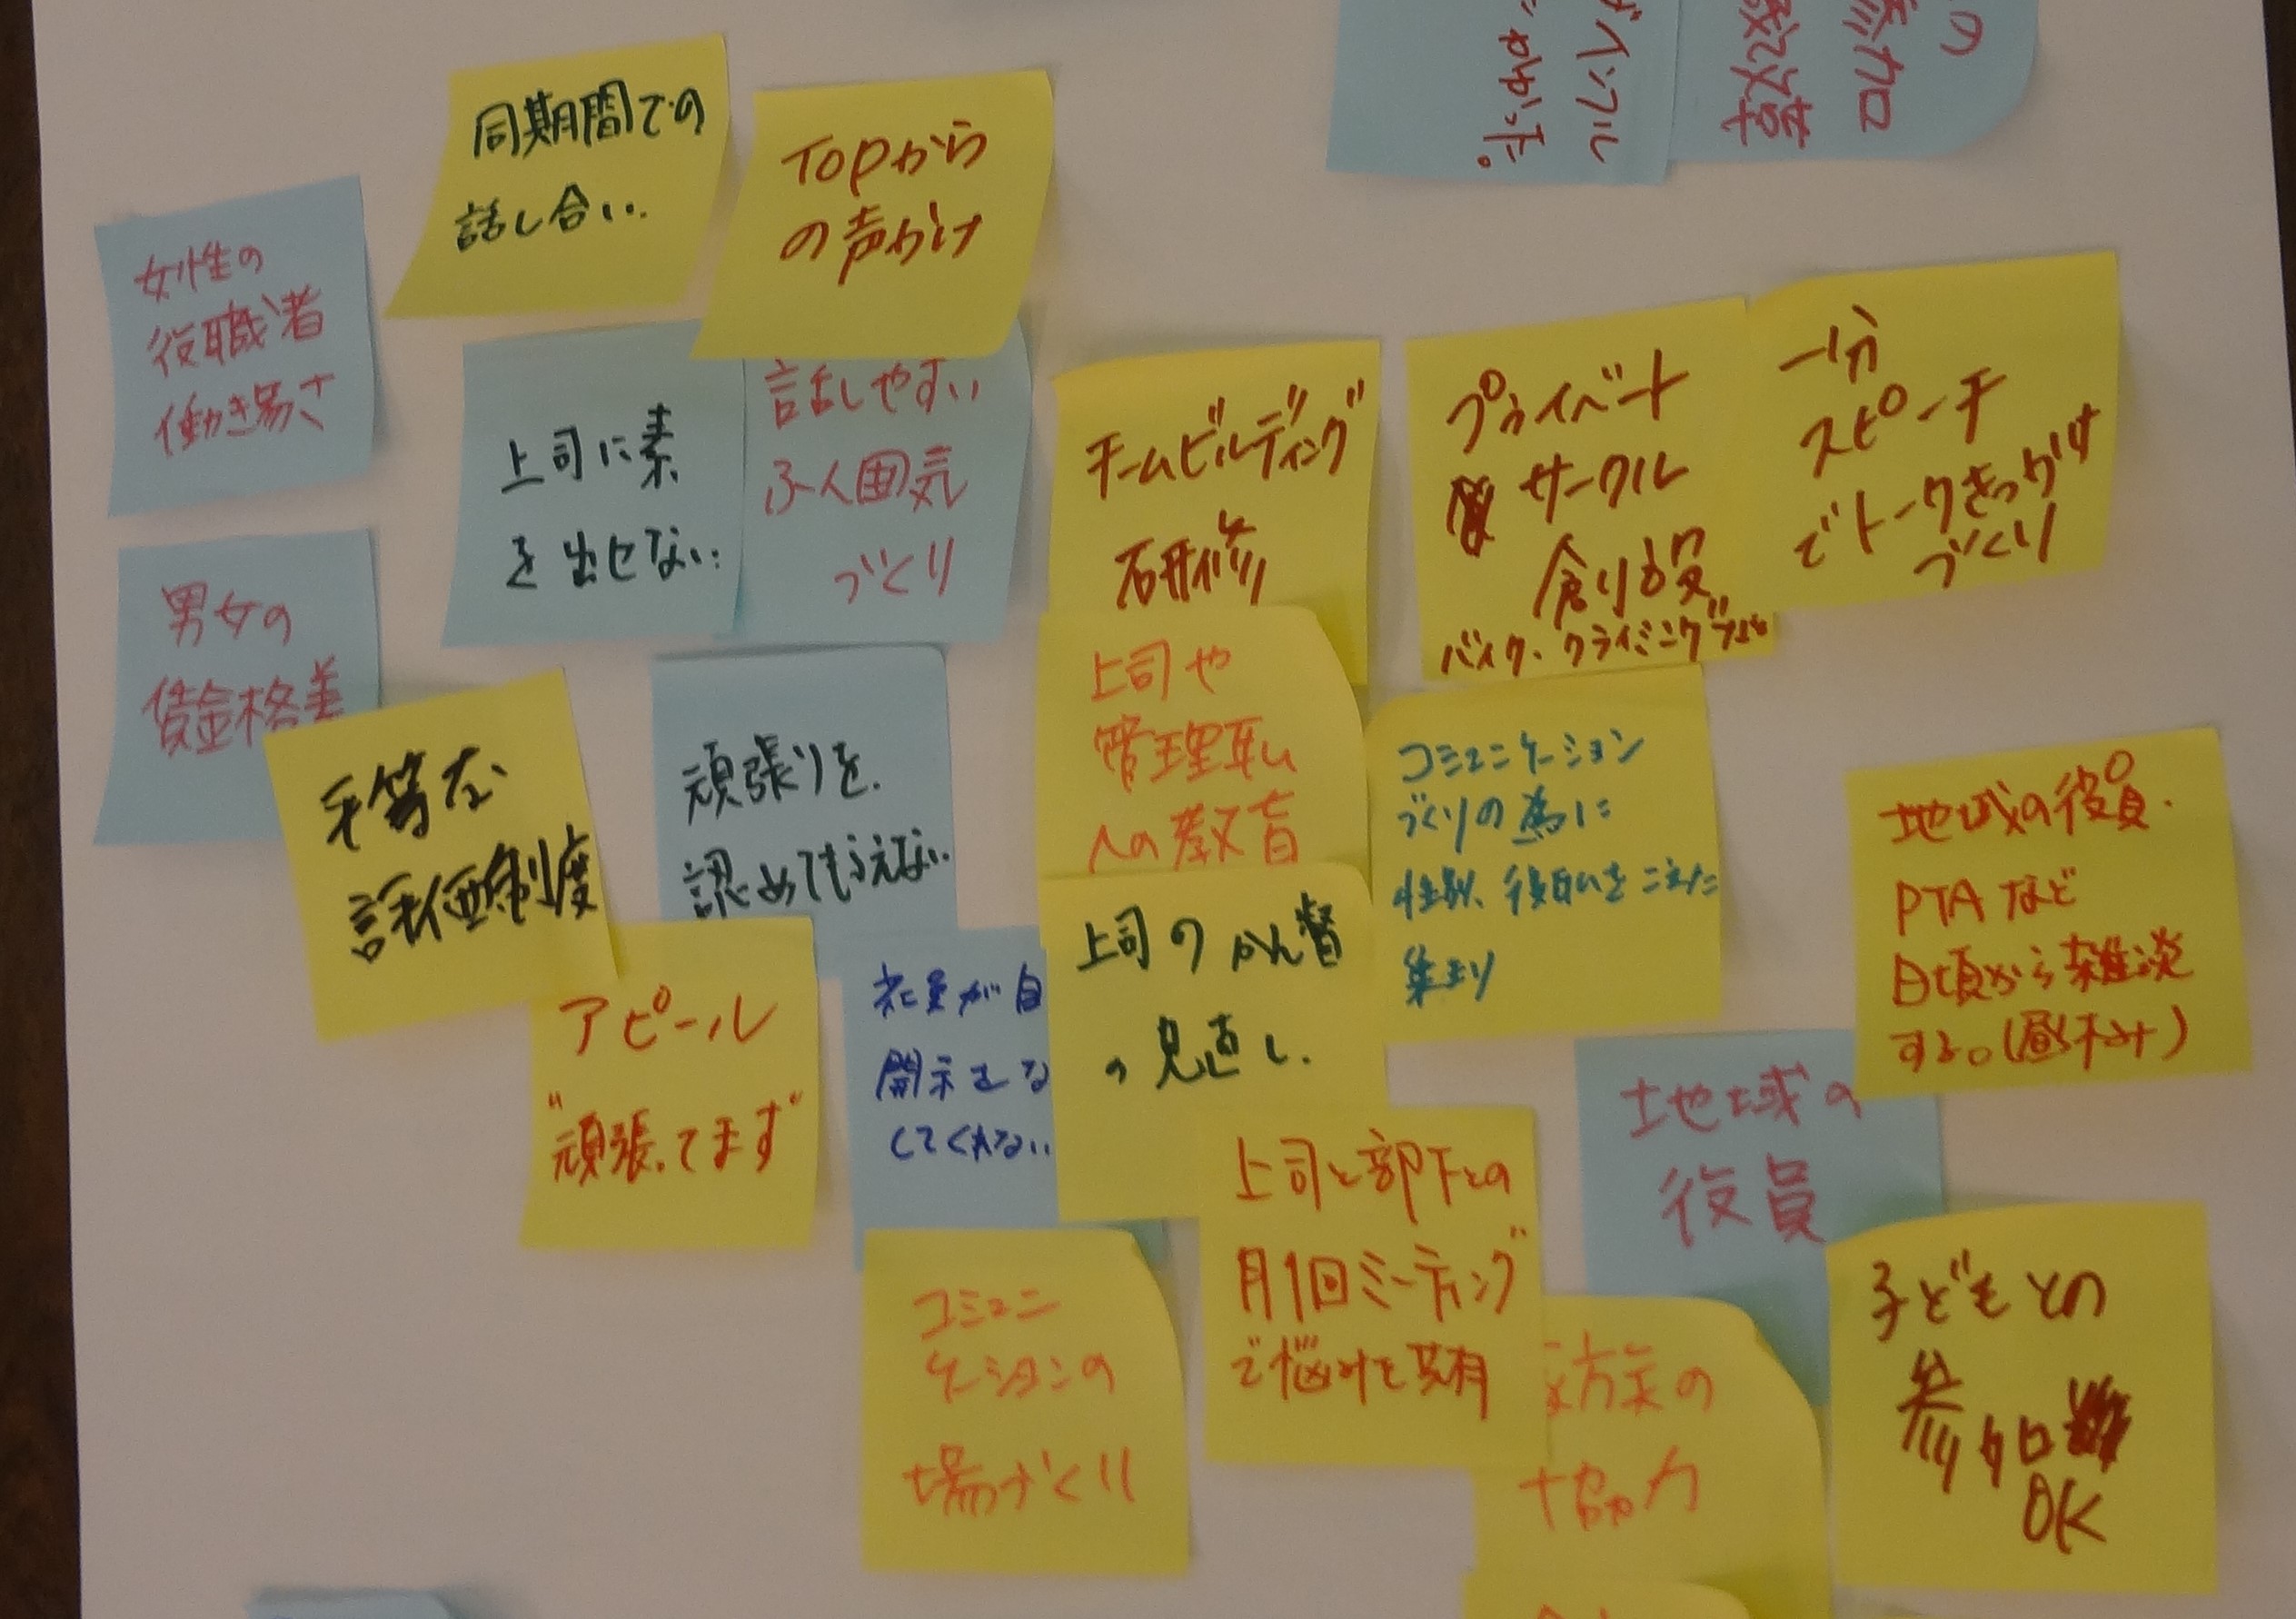 同期間での
話し合い.
TOPから
の声かけ
女性の
役職者
働き易さ
上司に素
を出せない.
話しやすい
ふん囲気
づくり
チームビルディング
研修
プライベート
サークル
創設
バイク・クライミング
一分
スピーチ
でトークきっかけ
づくり
男女の
賃金格差
平等な
評価制度
頑張りを.
認めてもらえない.
上司や
管理職
への教育
コミュニケーション
づくりの為に
性別、役職をこえた
集まり
地域の役員.
PTAなど
日頃から雑談
する。(昼休み)
アピール
"頑張ってます"
社員が自
開示をな
してくれない
上司のかん督
の見直し.
上司と部下との
月1回ミーティング
で悩みを共有
地域の
役員
子どもとの
参加
OK
コミュニ
ケーションの
場づくり
方の
協力